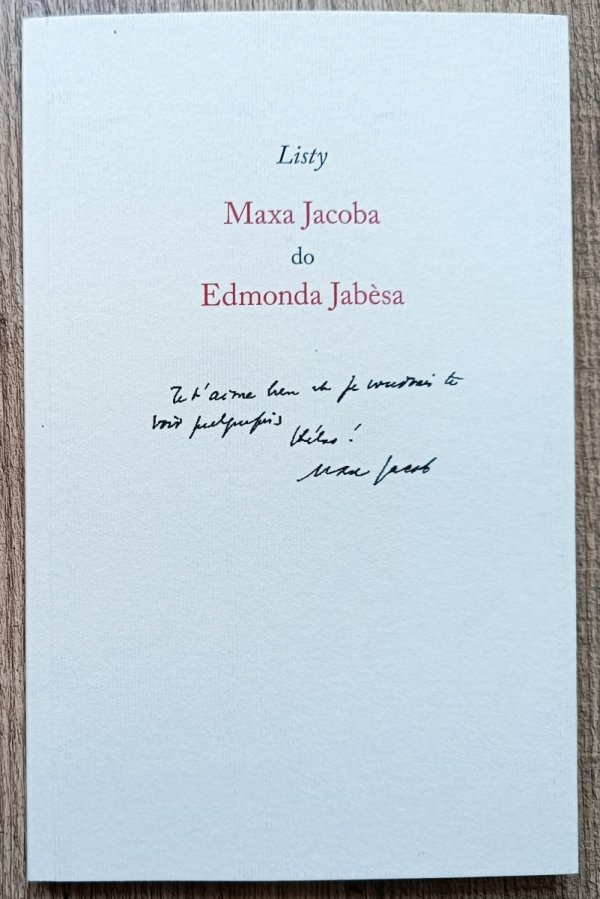 Listy
Maxa Jacoba
do
Edmonda Jabèsa
Je t'aime bien et je voudrais te
voir quelquefois Hélas !
Max Jacob